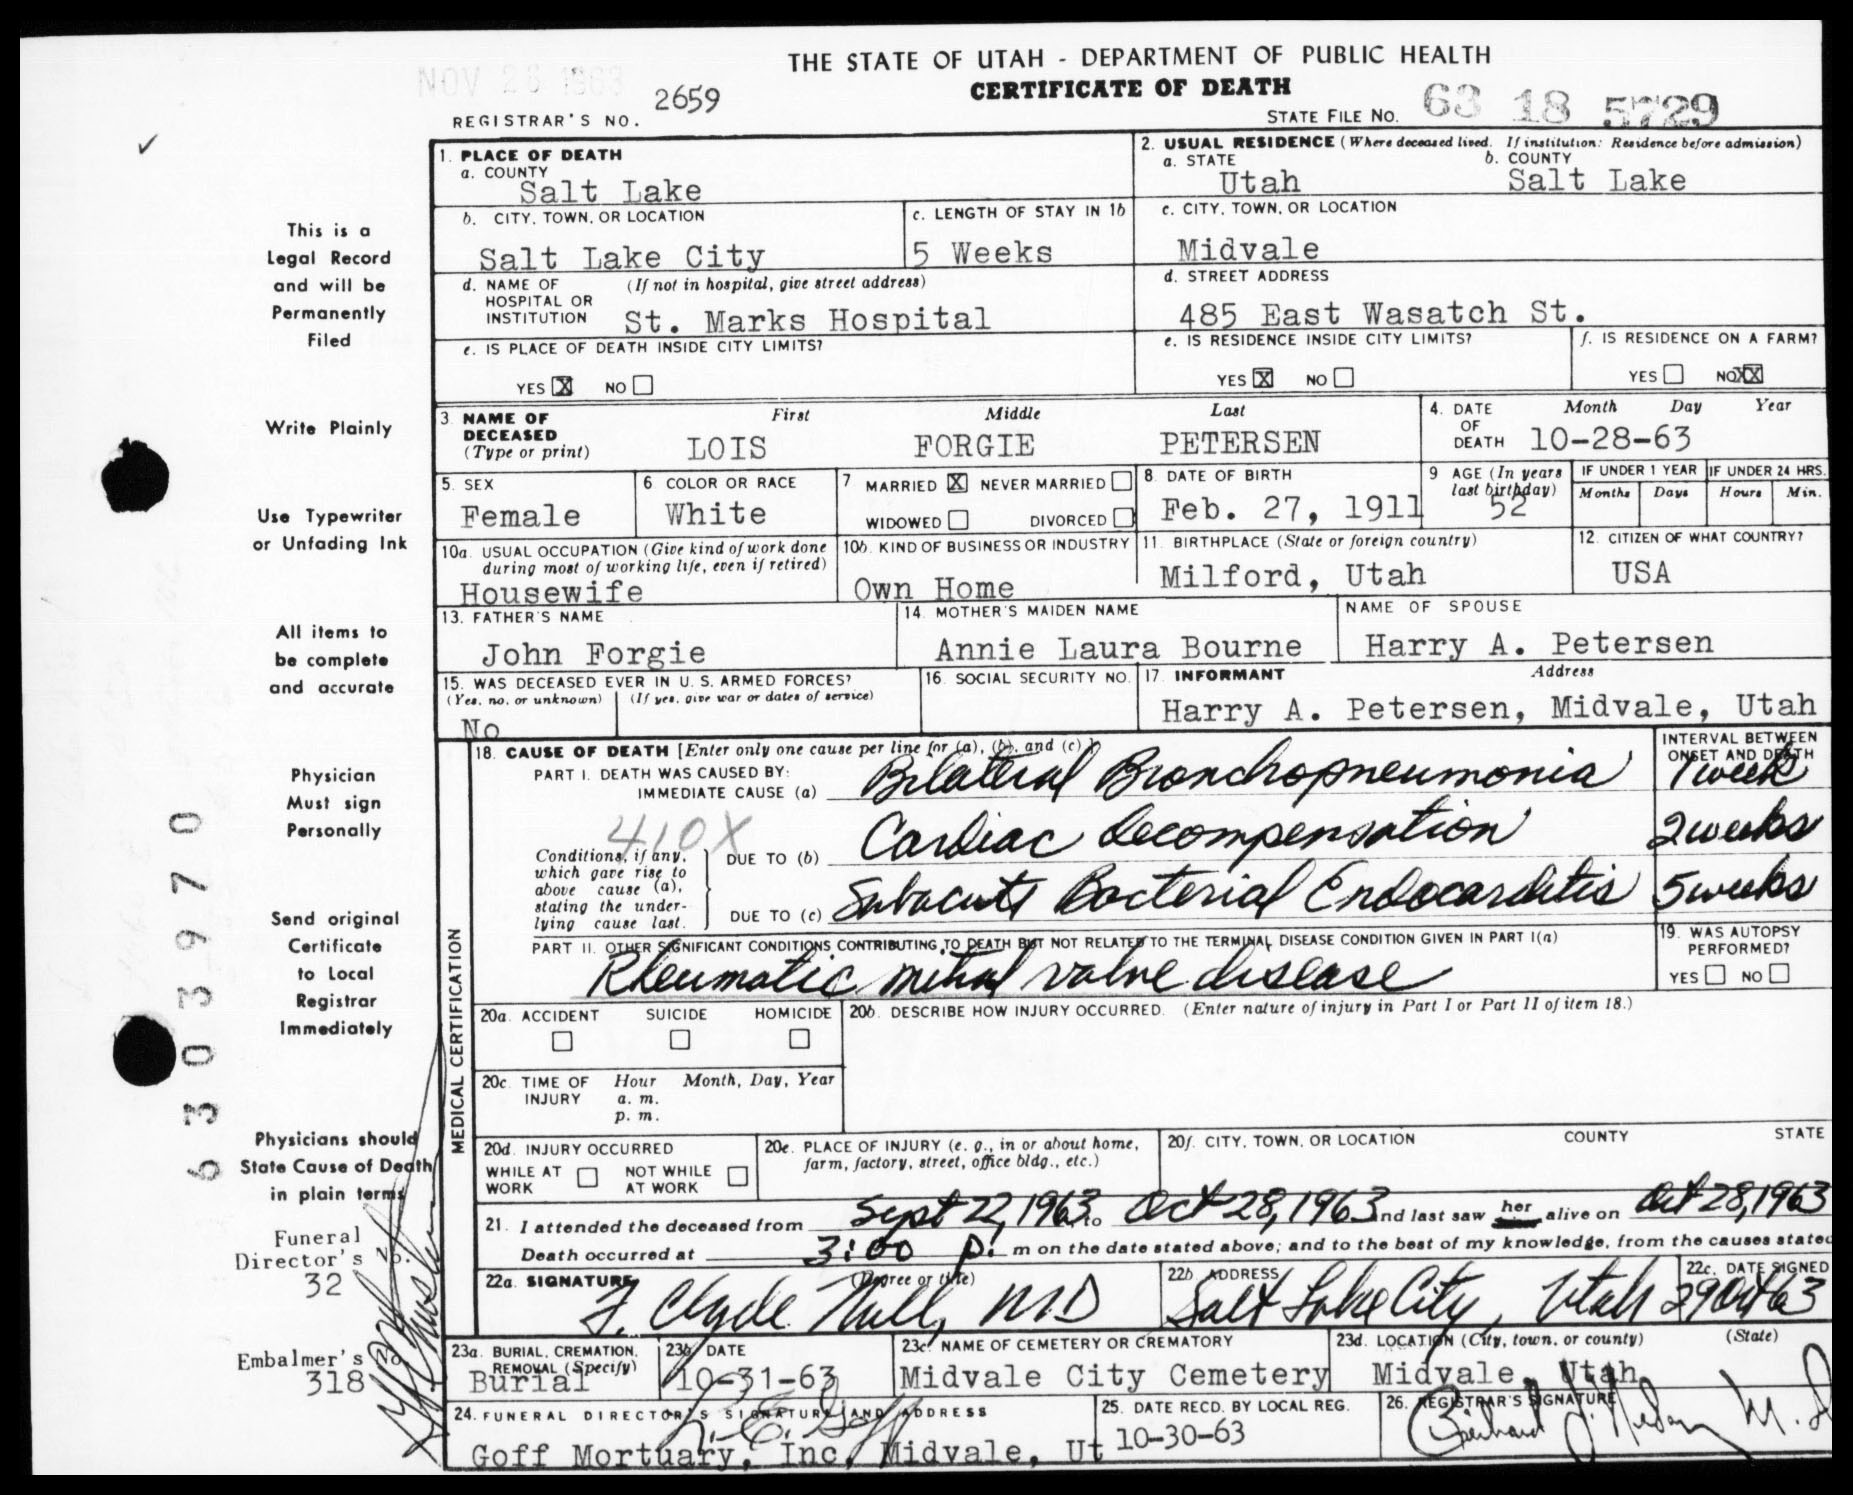 THE STATE OF UTAH - DEPARTMENT OF PUBLIC HEALTH
NOV 26 1963
CERTIFICATE OF DEATH
REGISTRAR'S NO. 2659
STATE FILE NO. 63 18 5729
1. PLACE OF DEATH
a. COUNTY
Salt Lake
2. USUAL RESIDENCE (Where deceased lived. If institution: Residence before admission)
a. STATE
Utah
b. COUNTY
Salt Lake
b. CITY, TOWN, OR LOCATION
Salt Lake City
c. LENGTH OF STAY IN 1b
5 Weeks
c. CITY, TOWN, OR LOCATION
Midvale
d. NAME OF HOSPITAL OR INSTITUTION
(If not in hospital, give street address)
St. Marks Hospital
d. STREET ADDRESS
485 East Wasatch St.
e. IS PLACE OF DEATH INSIDE CITY LIMITS?
YES X NO
e. IS RESIDENCE INSIDE CITY LIMITS?
YES X NO
f. IS RESIDENCE ON A FARM?
YES NO XX
3. NAME OF DECEASED
(Type or print)
First Middle Last
LOIS FORGIE PETERSEN
4. DATE OF DEATH
Month Day Year
10-28-63
5. SEX
Female
6. COLOR OR RACE
White
7. MARRIED X NEVER MARRIED
WIDOWED DIVORCED
8. DATE OF BIRTH
Feb. 27, 1911
9. AGE (In years last birthday)
52
IF UNDER 1 YEAR
Months Days
IF UNDER 24 HRS.
Hours Min.
10a. USUAL OCCUPATION (Give kind of work done during most of working life, even if retired)
Housewife
10b. KIND OF BUSINESS OR INDUSTRY
Own Home
11. BIRTHPLACE (State or foreign country)
Milford, Utah
12. CITIZEN OF WHAT COUNTRY?
USA
13. FATHER'S NAME
John Forgie
14. MOTHER'S MAIDEN NAME
Annie Laura Bourne
NAME OF SPOUSE
Harry A. Petersen
15. WAS DECEASED EVER IN U. S. ARMED FORCES?
(Yes, no, or unknown) (If yes, give war or dates of service)
No
16. SOCIAL SECURITY NO.
17. INFORMANT Address
Harry A. Petersen, Midvale, Utah
MEDICAL CERTIFICATION
18. CAUSE OF DEATH [Enter only one cause per line for (a), (b), and (c)]
INTERVAL BETWEEN ONSET AND DEATH
PART I. DEATH WAS CAUSED BY:
IMMEDIATE CAUSE (a) Bilateral Bronchopneumonia 1 week
410X
Conditions, if any, which gave rise to above cause (a), stating the underlying cause last.
DUE TO (b) Cardiac decompensation 2 weeks
DUE TO (c) Subacute Bacterial Endocarditis 5 weeks
PART II. OTHER SIGNIFICANT CONDITIONS CONTRIBUTING TO DEATH BUT NOT RELATED TO THE TERMINAL DISEASE CONDITION GIVEN IN PART I(a)
Rheumatic mitral valve disease
19. WAS AUTOPSY PERFORMED?
YES NO
20a. ACCIDENT SUICIDE HOMICIDE
20b. DESCRIBE HOW INJURY OCCURRED. (Enter nature of injury in Part I or Part II of item 18.)
20c. TIME OF INJURY
Hour Month, Day, Year
a. m.
p. m.
20d. INJURY OCCURRED
WHILE AT WORK NOT WHILE AT WORK
20e. PLACE OF INJURY (e. g., in or about home, farm, factory, street, office bldg., etc.)
20f. CITY, TOWN, OR LOCATION COUNTY STATE
21. I attended the deceased from Sept 22, 1963 to Oct 28, 1963 and last saw her alive on Oct 28, 1963
Death occurred at 3:00 p. m on the date stated above; and to the best of my knowledge, from the causes stated
22a. SIGNATURE (Degree or title)
F. Clyde Null, MD
22b. ADDRESS
Salt Lake City, Utah
22c. DATE SIGNED
29 Oct 63
23a. BURIAL, CREMATION, REMOVAL (Specify)
Burial
23b. DATE
10-31-63
23c. NAME OF CEMETERY OR CREMATORY
Midvale City Cemetery
23d. LOCATION (City, town, or county) (State)
Midvale, Utah
24. FUNERAL DIRECTOR'S SIGNATURE AND ADDRESS
Goff Mortuary, Inc, Midvale, Ut
25. DATE RECD. BY LOCAL REG.
10-30-63
26. REGISTRAR'S SIGNATURE
M. D
This is a
Legal Record
and will be
Permanently
Filed
Write Plainly
Use Typewriter
or Unfading Ink
All items to
be complete
and accurate
Physician
Must sign
Personally
Send original
Certificate
to Local
Registrar
Immediately
Physicians should
State Cause of Death
in plain terms
Funeral
Director's No.
32
Embalmer's No.
318
6303970